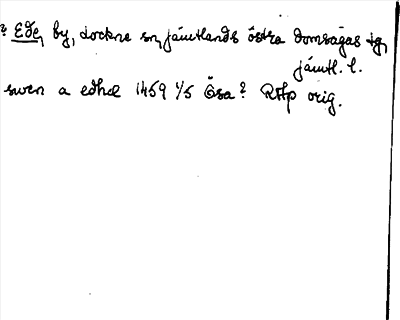 ? Ede, by, Lockne sn, Jämtlands östra domsagas tg,
Jämtl. l.
swen a edhæ 1459 1/5 Ösa? RAp orig.